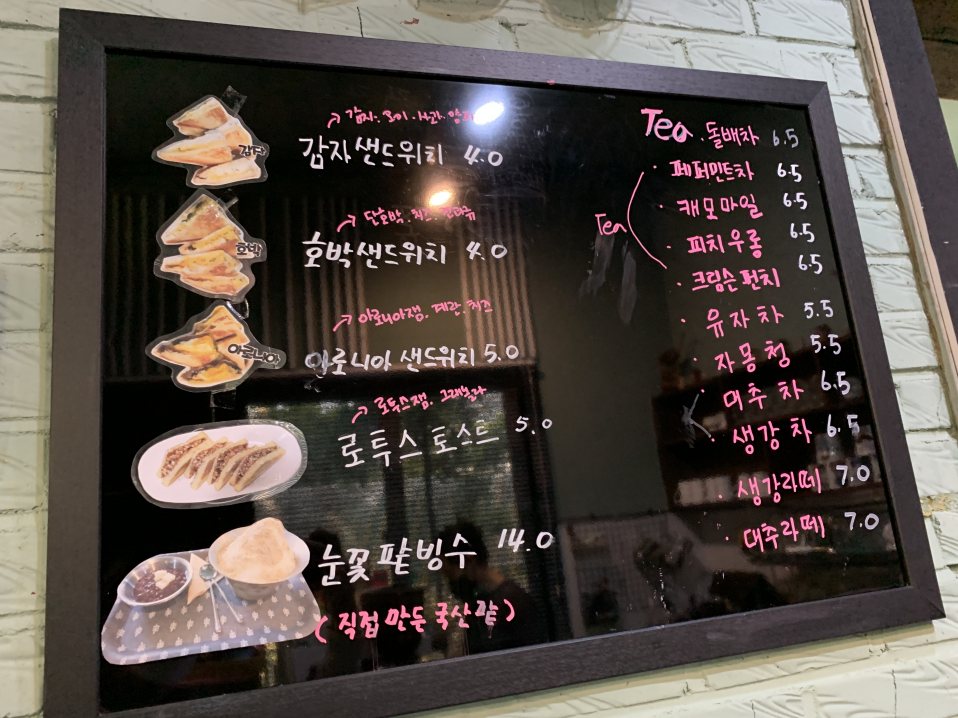 감자
감자. 오이. 사과.
감자샌드위치 4.0
호박
단호박. 치즈
호박샌드위치 4.0
아로니아
아로니아잼. 계란. 치즈
아로니아 샌드위치 5.0
로투스잼. 그래놀라
로투스토스트 5.0
눈꽃팥빙수 14.0
(직접 만든 국산팥)
Tea
· 돌배차 6.5
Tea
· 페퍼민트차 6.5
· 캐모마일 6.5
· 피치우롱 6.5
· 크림슨펀치 6.5
· 유자차 5.5
· 자몽청 5.5
· 대추차 6.5
· 생강차 6.5
· 생강라떼 7.0
· 대추라떼 7.0